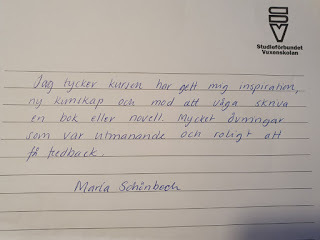 SV
Studieförbundet
Vuxenskolan
Jag tycker kursen har gett mig inspiration,
ny kunskap och mod att våga skriva
en bok eller novell. Mycket övningar
som var utmanande och roligt att
få feedback.
Maria Schönbech